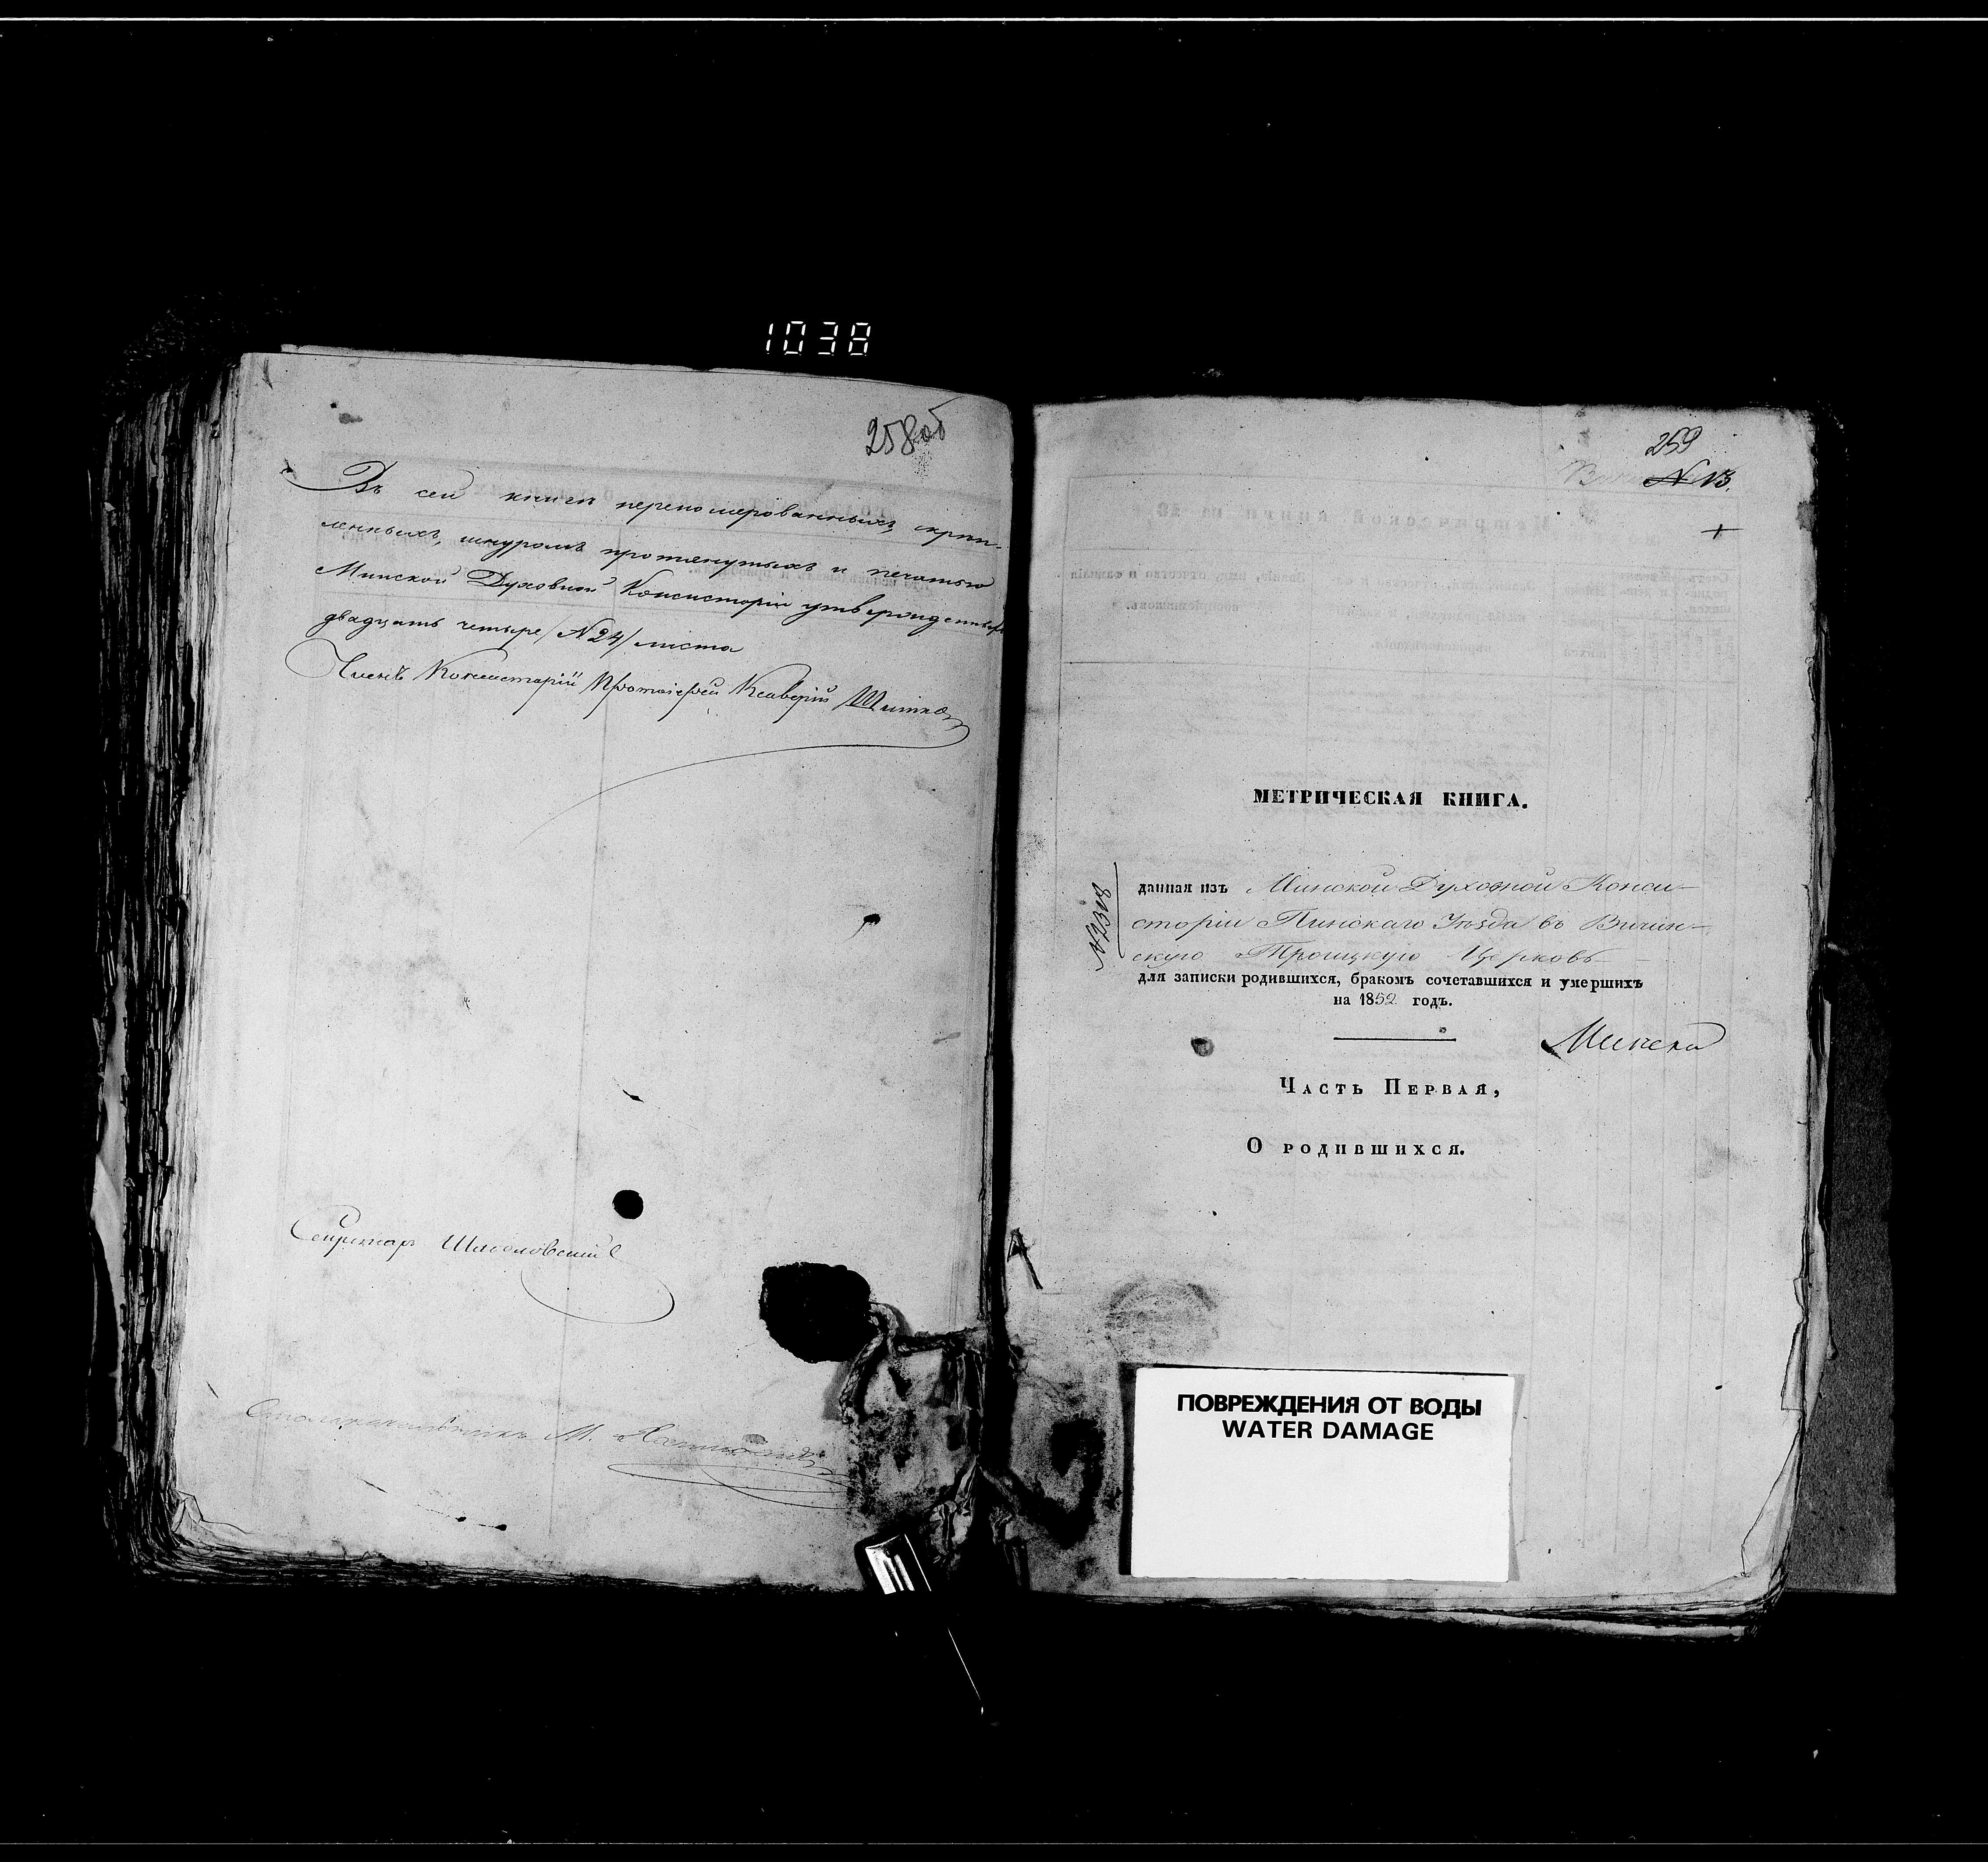 1038
258 об
Въ сей книгѣ перенумерованныхъ, скрѣп-
ленныхъ, шнуромъ протянутыхъ и печатью
Минской Духовной Консисторіи утвержденныхъ
двадцать четыре /N 24/ листа
Членъ Консисторіи Протоіерей Ксаверій
Секретарь
М.
259
N 13.
МЕТРИЧЕСКАЯ КНИГА.
N 2318
данная изъ Минской Духовной Конси-
сторіи Пинскаго Уѣзда въ Вичин-
скую Троицкую Церковь
для записки родившихся, бракомъ сочетавшихся и умершихъ
на 1852 годъ.
Часть Первая,
О родившихся.
ПОВРЕЖДЕНИЯ ОТ ВОДЫ
WATER DAMAGE